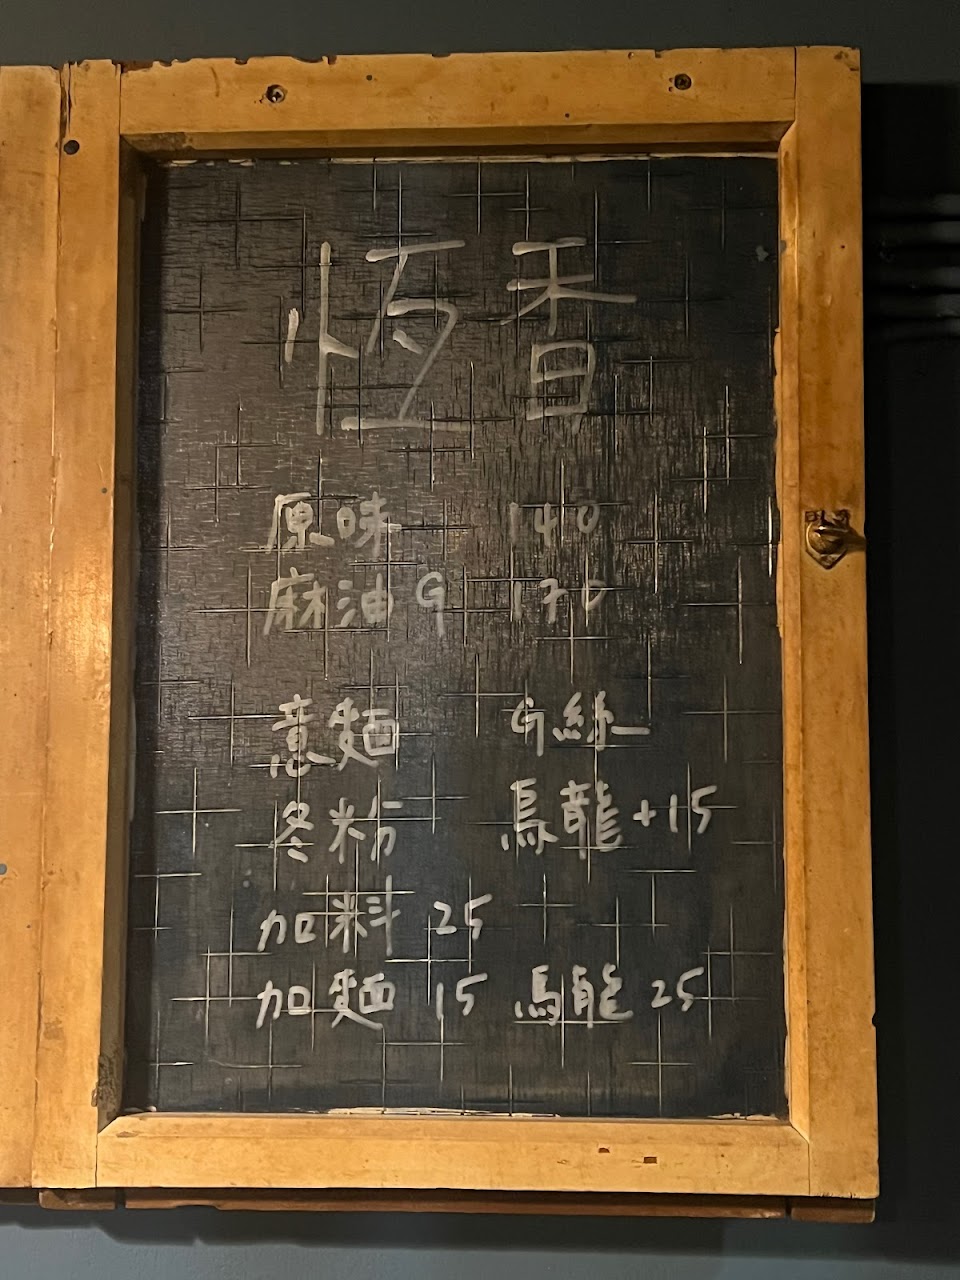 恆香
原味 140
麻油G 170
意麵 G絲
冬粉 烏龍+15
加料 25
加麵 15 烏龍 25